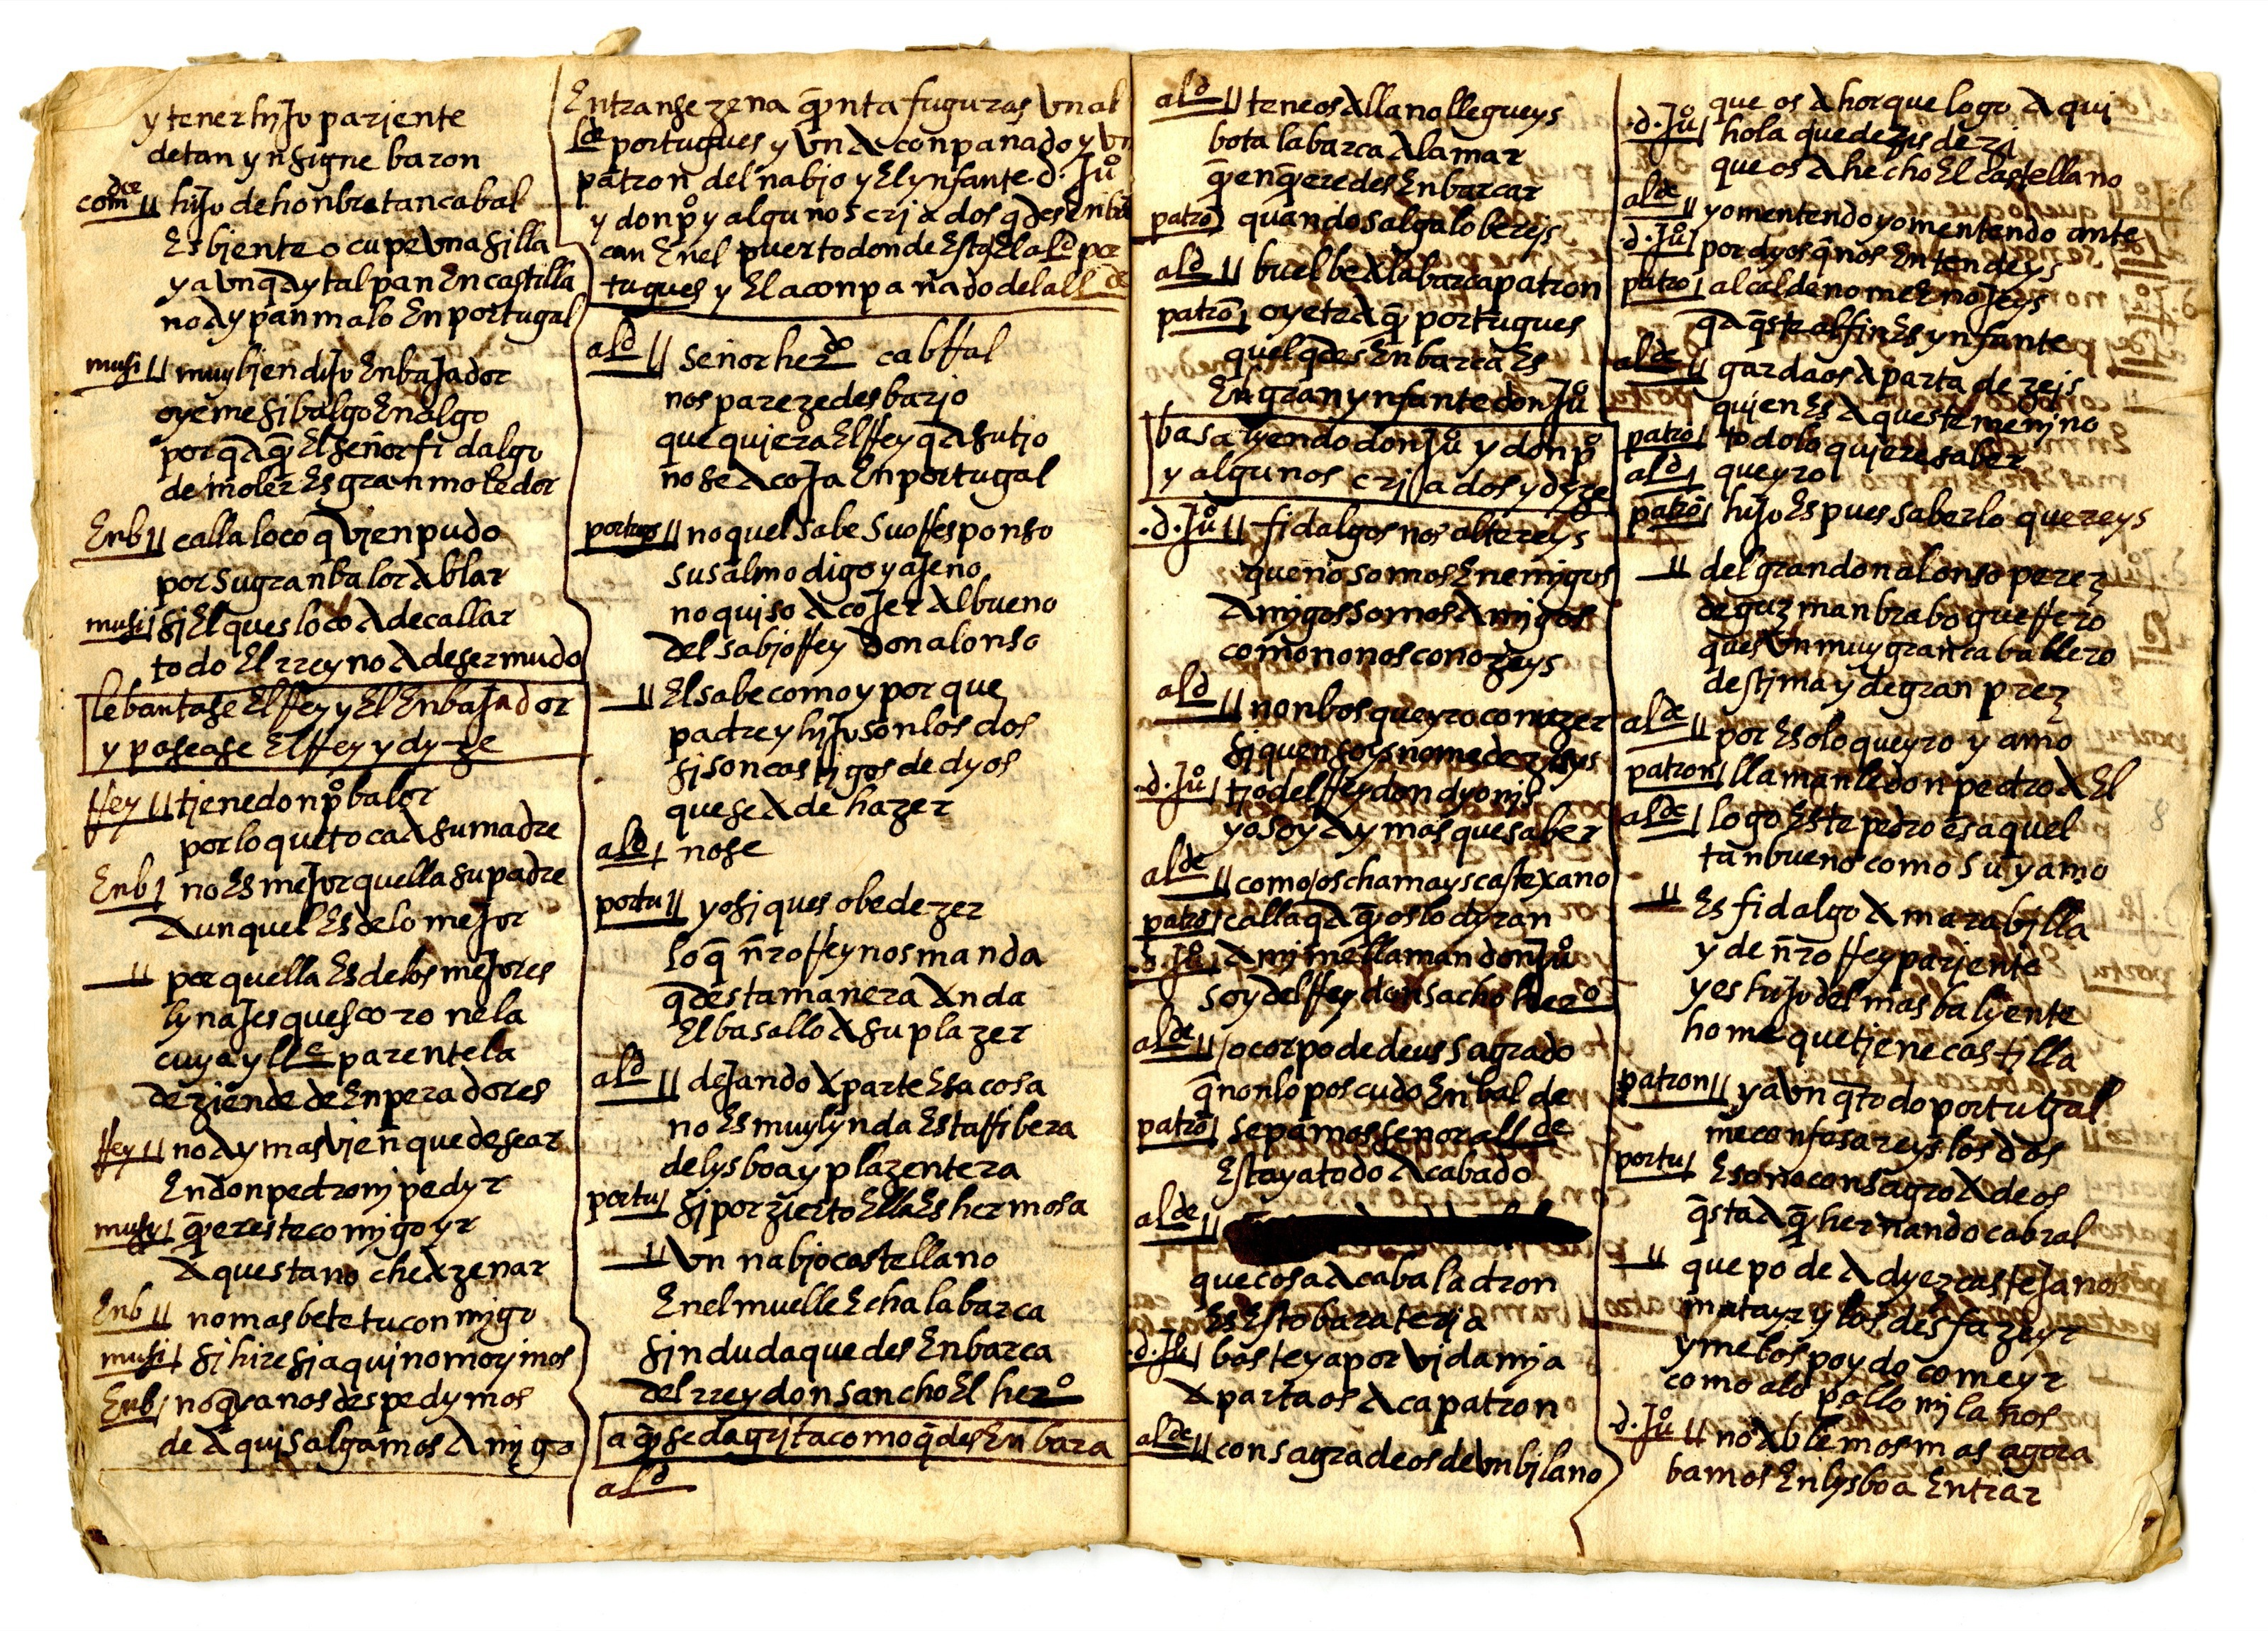 y tener hyJo pariente
de tan ynsigne baron
comdce || hiJo de honbre tan cabal
Es bien te ocupe Vna silla
y aVnq ay tal pan En castilla
no ay pan malo En portugal
musi || muy bien dijo EnbaJador
oyeme si balgo En algo
porq aq El señor fidalgo
de moler Es gran moledor
Enb || calla loco q vien pudo
por su gran balor Ablar
musi | si El ques loco A de callar
todo El rreyno A de ser mudo
lebantase El Rey y El EnbaJador
y pasease El Rey y dyze
Rey || tiene don po balor
por lo que toca A su madre
Enb | no Es meJor quella su padre
Aunquel Es de lo meJor
|| porquella Es de los meJores
lynaJes quescoronela
cuya ylle parentela
deziende de Enperadores
Rey || no Ay mas vien que desear
En don pedro ni pedyr
musy | qeres te comigo yr
Aquesta noche A zenar
Enb || no mas bete tu conmygo
musi | si hire si aqui no morimos
Enb | no q ya nos despedymos
de Aqui salgamos Amigo
Entranse zena qinta fuguras Vn al
lde portugues y Vn Aconpanado y Vn
patron del nabio y El ynfante .d. Juo
y don po y algunos criados q desenbar
can En el puerto donde Esta El ald por
tugues y El aconpañado del all de
ald || señor herdo cabRal
nos pareze desbario
que quiera El Rey q A su tio
no se AcoJa En portugal
portugs || no quel sabe su o Responso
su salmo digo y aJeno
no quiso AcoJer Al bueno
del sabio Rey don alonso
|| El sabe como y por que
padre y hiJo son los dos
si son castigos de dyos
que se A de hazer
ald | no se
portu || yo si ques obedezer
lo q nro Rey nos manda
q desta manera Anda
El basallo A su plazer
ald || deJando Aparte Esa cosa
no Es muy lynda Esta Ribera
de lysboa y plazentera
portu | si por zierto Ella Es hermosa
|| Vn nabio castellano
En el muelle Echa la barca
sin duda que desEnbarca
del rrey don sancho El hero
aqi se da grita como q desEnbarca
ald
ald || teneos Alla no llegueys
bota la barca A la mar
qen qeredes Enbarcar
patro | quando salga lo bereis
ald || buelbe A la barca patron
patro | oyetr aqi portugues
quel q desEnbarca Es
El gran ynfante don Juo
basalyendo don Juo y don po
y algunos criados y dyze
.d. Juo || fidalgos nos altereys
que no somos Enemigos
Amigos somos Amigos
como no nos conozeys
ald || non bos queyro conozer
si quen soys no me dezeys
.d. Juo | tio del Rey don dyonis
yo soy Ay mas que saber
alde || como os chamays castexano
patro | calla q Aqi os lo dyran
.d. Juo | A mi me llaman don Juo
soy del Rey don sacho hero
alde || o corpo de deus sagrado
q non lo poscudo En balde
patro | sepamos señor all de
Esta ya todo Acabado
alde ||
que cosa Acaba ladron
Es Esto barateria
.d. Juo | baste ya por vida mia
Apartaos Aca patron
alde || consagradeos de Vn bilano
que os Ahorque logo Aqui
.d. Juo | hola que dezis dezi
que os A hecho El castellano
alde || yo mentendo yo mentendo ante
.d. Juo | por dyos q nos Entendeys
patro | alcalde no me EnoJeys
q Aqste al fin Es ynfante
alde || gardaos Aparta dezeis
quien Es Aqueste menino
patro | todo lo quiere saber
ald | queyro
patro | hiJo Es pues saberlo quereys
|| del gran don alonso perez
de guzman brabo gueRero
ques Vn muy gran caballero
destima y de gran prez
alde || por Eso lo queyro y amo
patron | llamanle don pedro A El
alde | logo Este pedro es aquel
tan bueno como su yamo
|| Es fidalgo A marabilla
y de nro Rey pariente
y es hiJo del mas balyente
home que tiene castilla
patron || y aVn q todo portugal
me confasareys los dos
portu | Eso no consagro A deos
qsta aqi hernando cabral
|| que pode A dyez casteJanos
matayr y los desfazeyr
y me los poydo comeyr
como a lo pollo milanos
.d. Juo || no Ablemos mas agora
bamos En lysboa Entrar